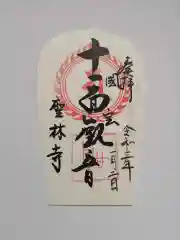 奉拝
令和二年
一月二日
十一面観音
聖林寺